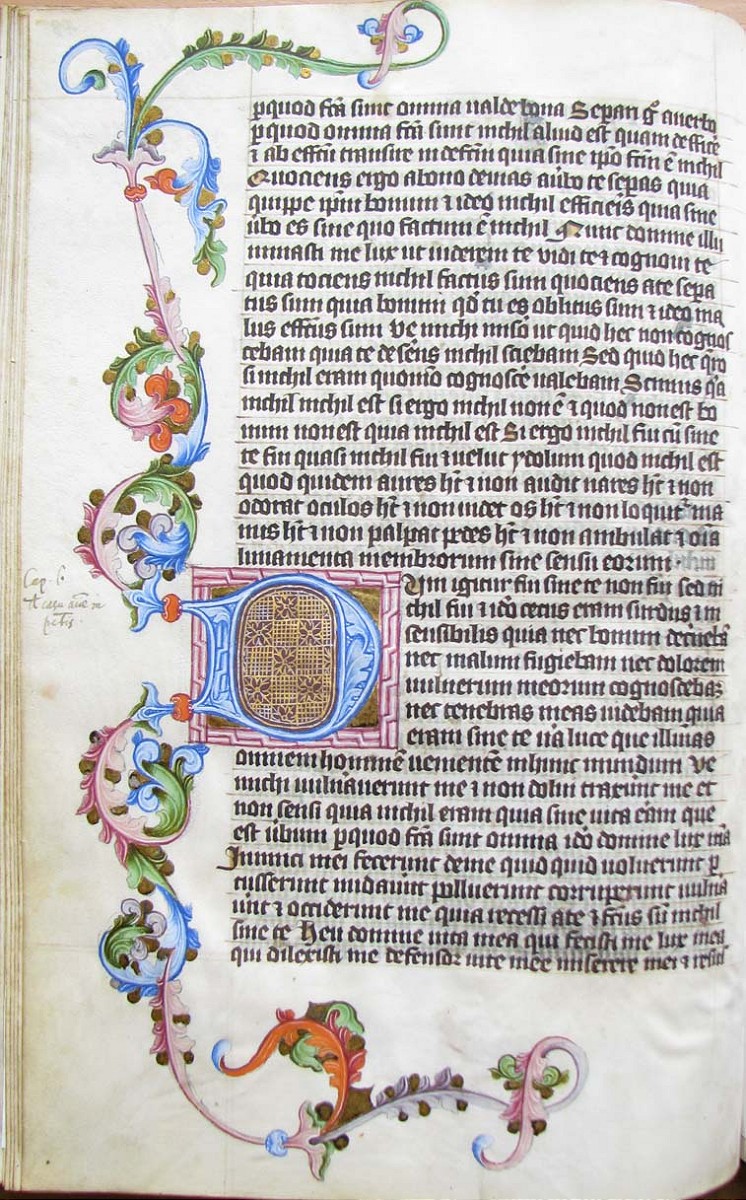 pquod fca sunt omnia ualde bona Separ g auerbo
pquod omnia fca sunt nichil aliud est quam deffice
⁊ ab effcu transire in defcm quia sine ipo fcm e nichil
Quociens ergo abono deuias aubo te sepas quia
quippe ipm bonum ⁊ ideo nichil efficieris quia sine
ubo es sine quo factum e nichil Nunc domine illu
minasti me lux ut uiderem te uidi te ⁊ cognoui te
quia tociens nichil factus sum quociens ate sepa
tus sum quia bonum qd tu es oblitus sum ⁊ ideo ma
lus effcus sum Ve michi miso ut quid hec non cognos
cebam quia te deserens nichil sciebam Sed quid hec qro
si nichil eram quomo cognosce ualebam Scimus qa
nichil nichil est si ergo nichil non e ⁊ quod non est bo
num non est quia nichil est Si ergo nichil fui cu sine
te fui quasi nichil fui ⁊ uelut ydolum quod nichil est
quod quidem aures ht ⁊ non audit nares ht ⁊ non
odorat oculos ht ⁊ non uidet os ht ⁊ non loquit ma
nus ht ⁊ non palpat pedes ht ⁊ non ambulat ⁊ oia
liniamenta membrorum sine sensu eorum
Cap. 6.
DUm igitur fui sine te non fui sed ni
chil fui ⁊ ido cecus eram surdus ⁊ in
sensibilis quia nec bonum decneba
nec malum fugiebam nec dolorem
uulnerum meorum cognoscebaz
nec tenebras meas uidebam quia
eram sine te ua luce que illuias
omnem hominē uenientē inhunc mundum Ve
michi uulnauerunt me ⁊ non dolui traxunt me et
non sensi quia nichil eram quia sine uita eam que
est ubum pquod fca sunt omnia ido domine lux ma
Inimici mei fecerunt deme quid quid uoluerunt p
cusserunt nudauint polluerunt corruperunt uulna
unt ⁊ occiderunt me quia recessi ate ⁊ fcus su nichil
sine te Heu domine uita mea qui fecisti me lux mea
qui dilexisti me defensor uite mee miserere mei ⁊